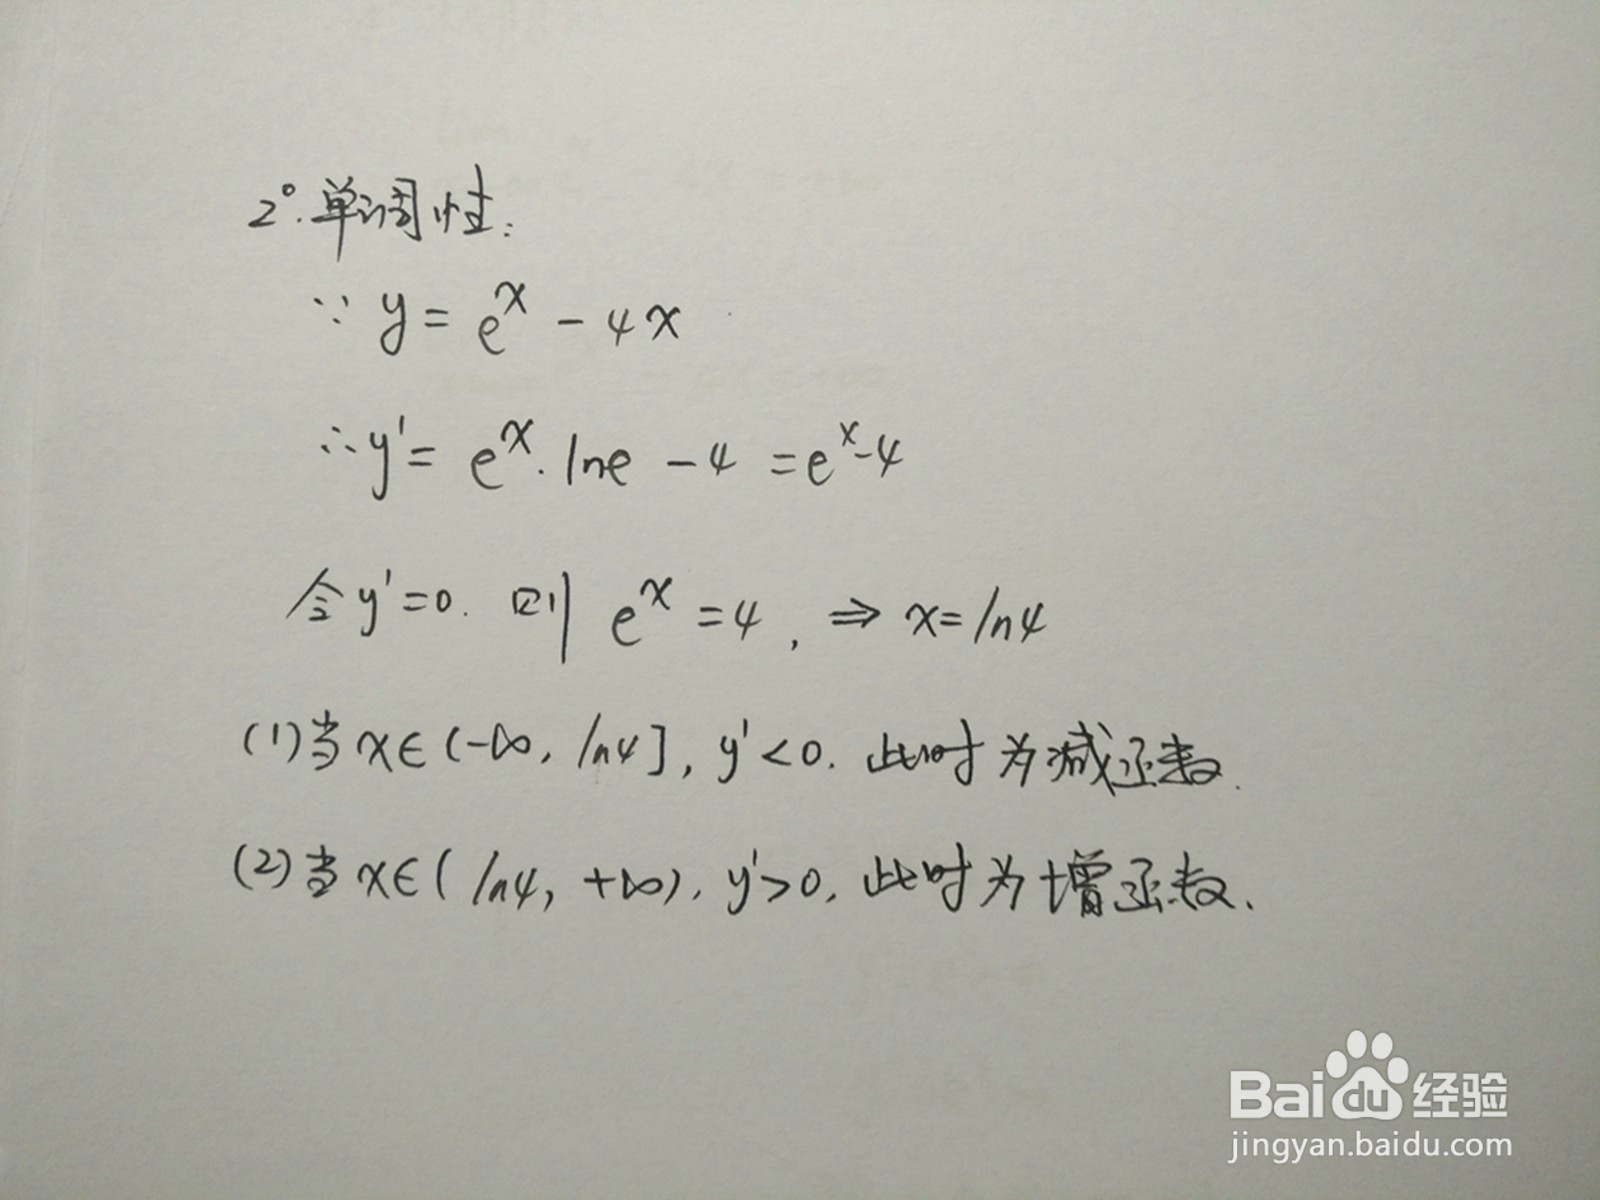 2°.单调性:
∵ y = e^x - 4x
∴ y' = e^x · lne - 4 = e^x - 4
令 y'=0. 则 e^x = 4, ⇒ x = ln4
(1)当 x∈(-∞, ln4], y'<0. 此时为减函数.
(2)当 x∈(ln4, +∞), y'>0, 此时为增函数.
Bai du 经验
jingyan.baidu.com